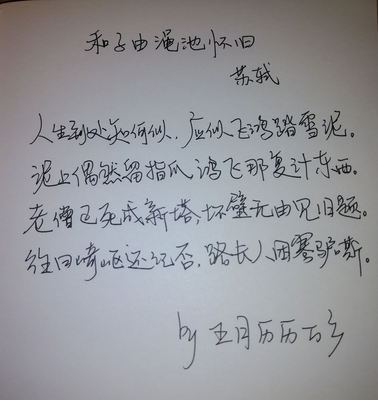 和子由渑池怀旧
苏轼
人生到处知何似，应似飞鸿踏雪泥。
泥上偶然留指爪 鸿飞那复计东西。
老僧已死成新塔，坏壁无由见旧题。
往日崎岖还记否，路长人困蹇驴嘶。
by 五月历历万乡